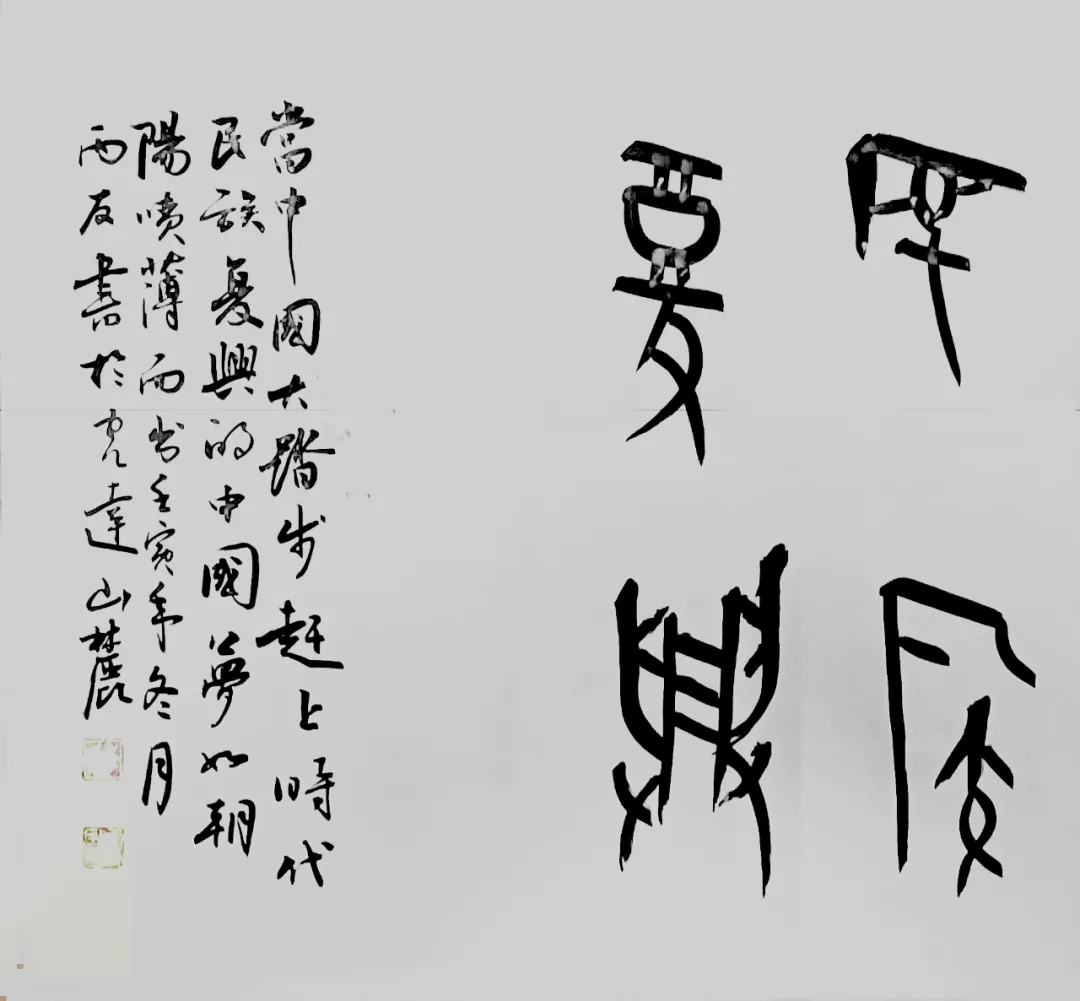 民族
复興
當中國大踏步趕上時代
民族复興的中國夢如朝
陽噴薄而出壬寅年冬月
友書於達山麓